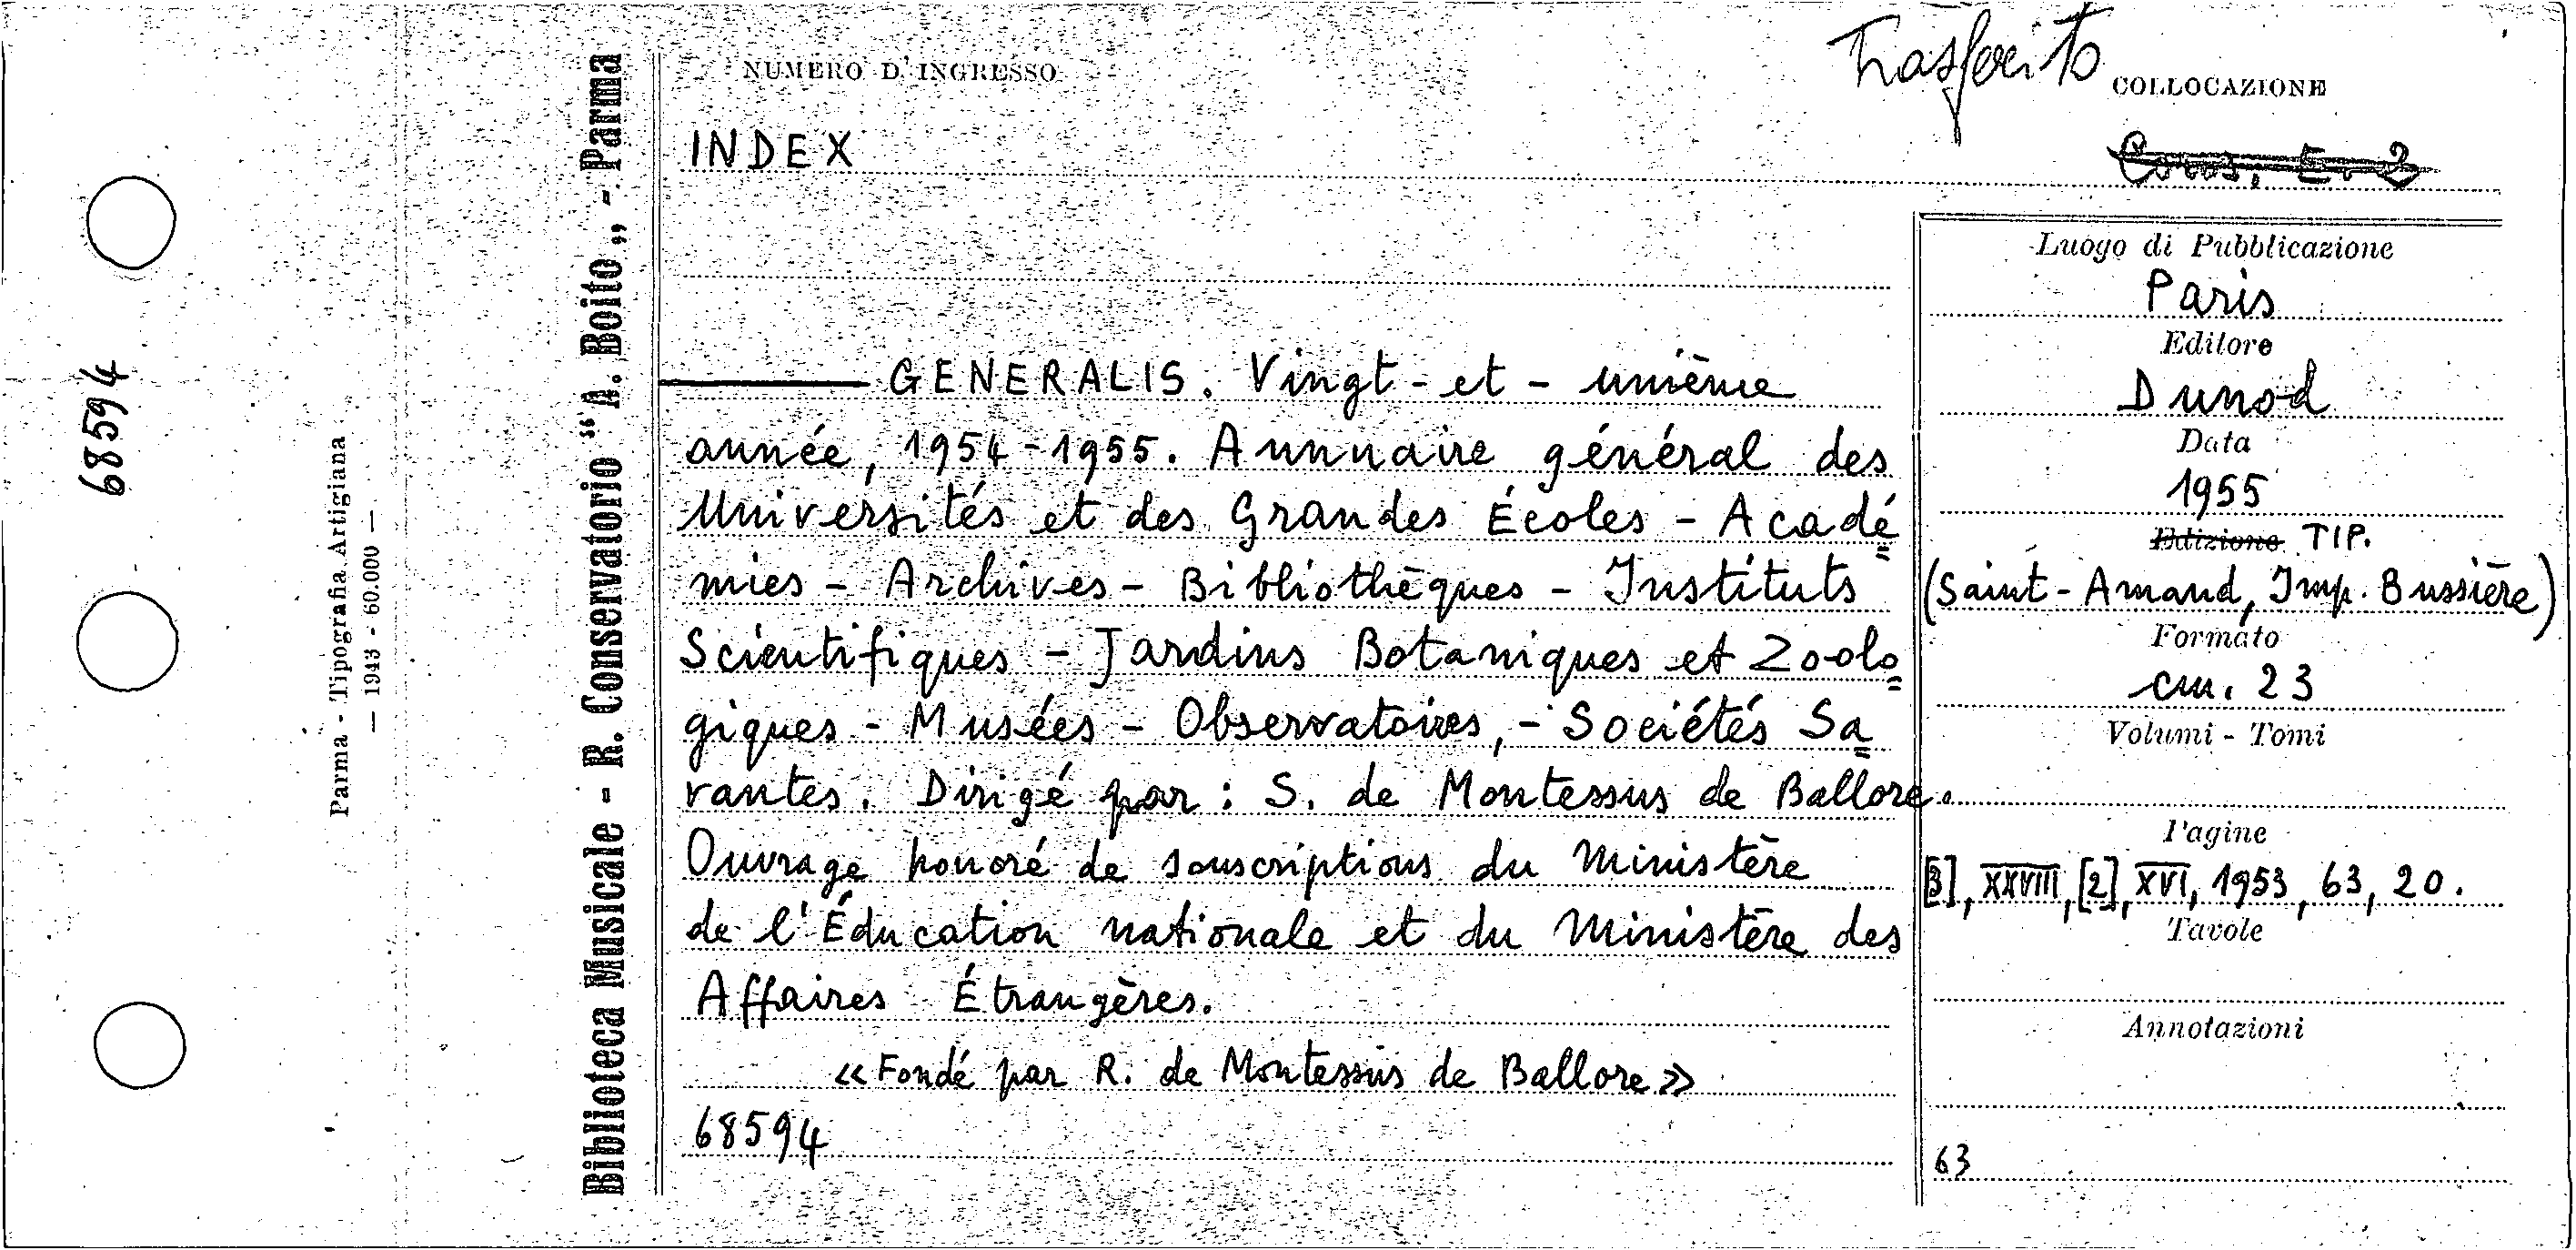 68594
Parma - Tipografia Artigiana
— 1943 - 60.000 —
Biblioteca Musicale - R. Conservatorio “A. Boito„ - Parma
NUMERO D'INGRESSO
Trasferito
COLLOCAZIONE
INDEX
E. 2
GENERALIS. Vingt-et-unième
année, 1954-1955. Annuaire général des
Universités et des Grandes Écoles - Acadé=
mies - Archives - Bibliothèques - Instituts
Scientifiques - Jardins Botaniques et Zoolo=
giques - Musées - Observatoires, - Sociétés Sa=
vantes. Dirigé par : S. de Montessus de Ballore.
Ouvrage honoré de souscriptions du Ministère
de l'Éducation nationale et du Ministère des
Affaires Étrangères.
«Fondé par R. de Montessus de Ballore»
68594
Luogo di Pubblicazione
Paris
Editore
Dunod
Data
1955
Edizione TIP.
(Saint-Amand, Imp. Bussière)
Formato
cm. 23
Volumi - Tomi
Pagine
[3], XXVIII, [2], XVI, 1953, 63, 20.
Tavole
Annotazioni
63